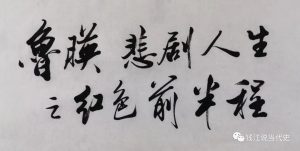 鲁暎悲剧人生
之红色前半程
钱江说当代史